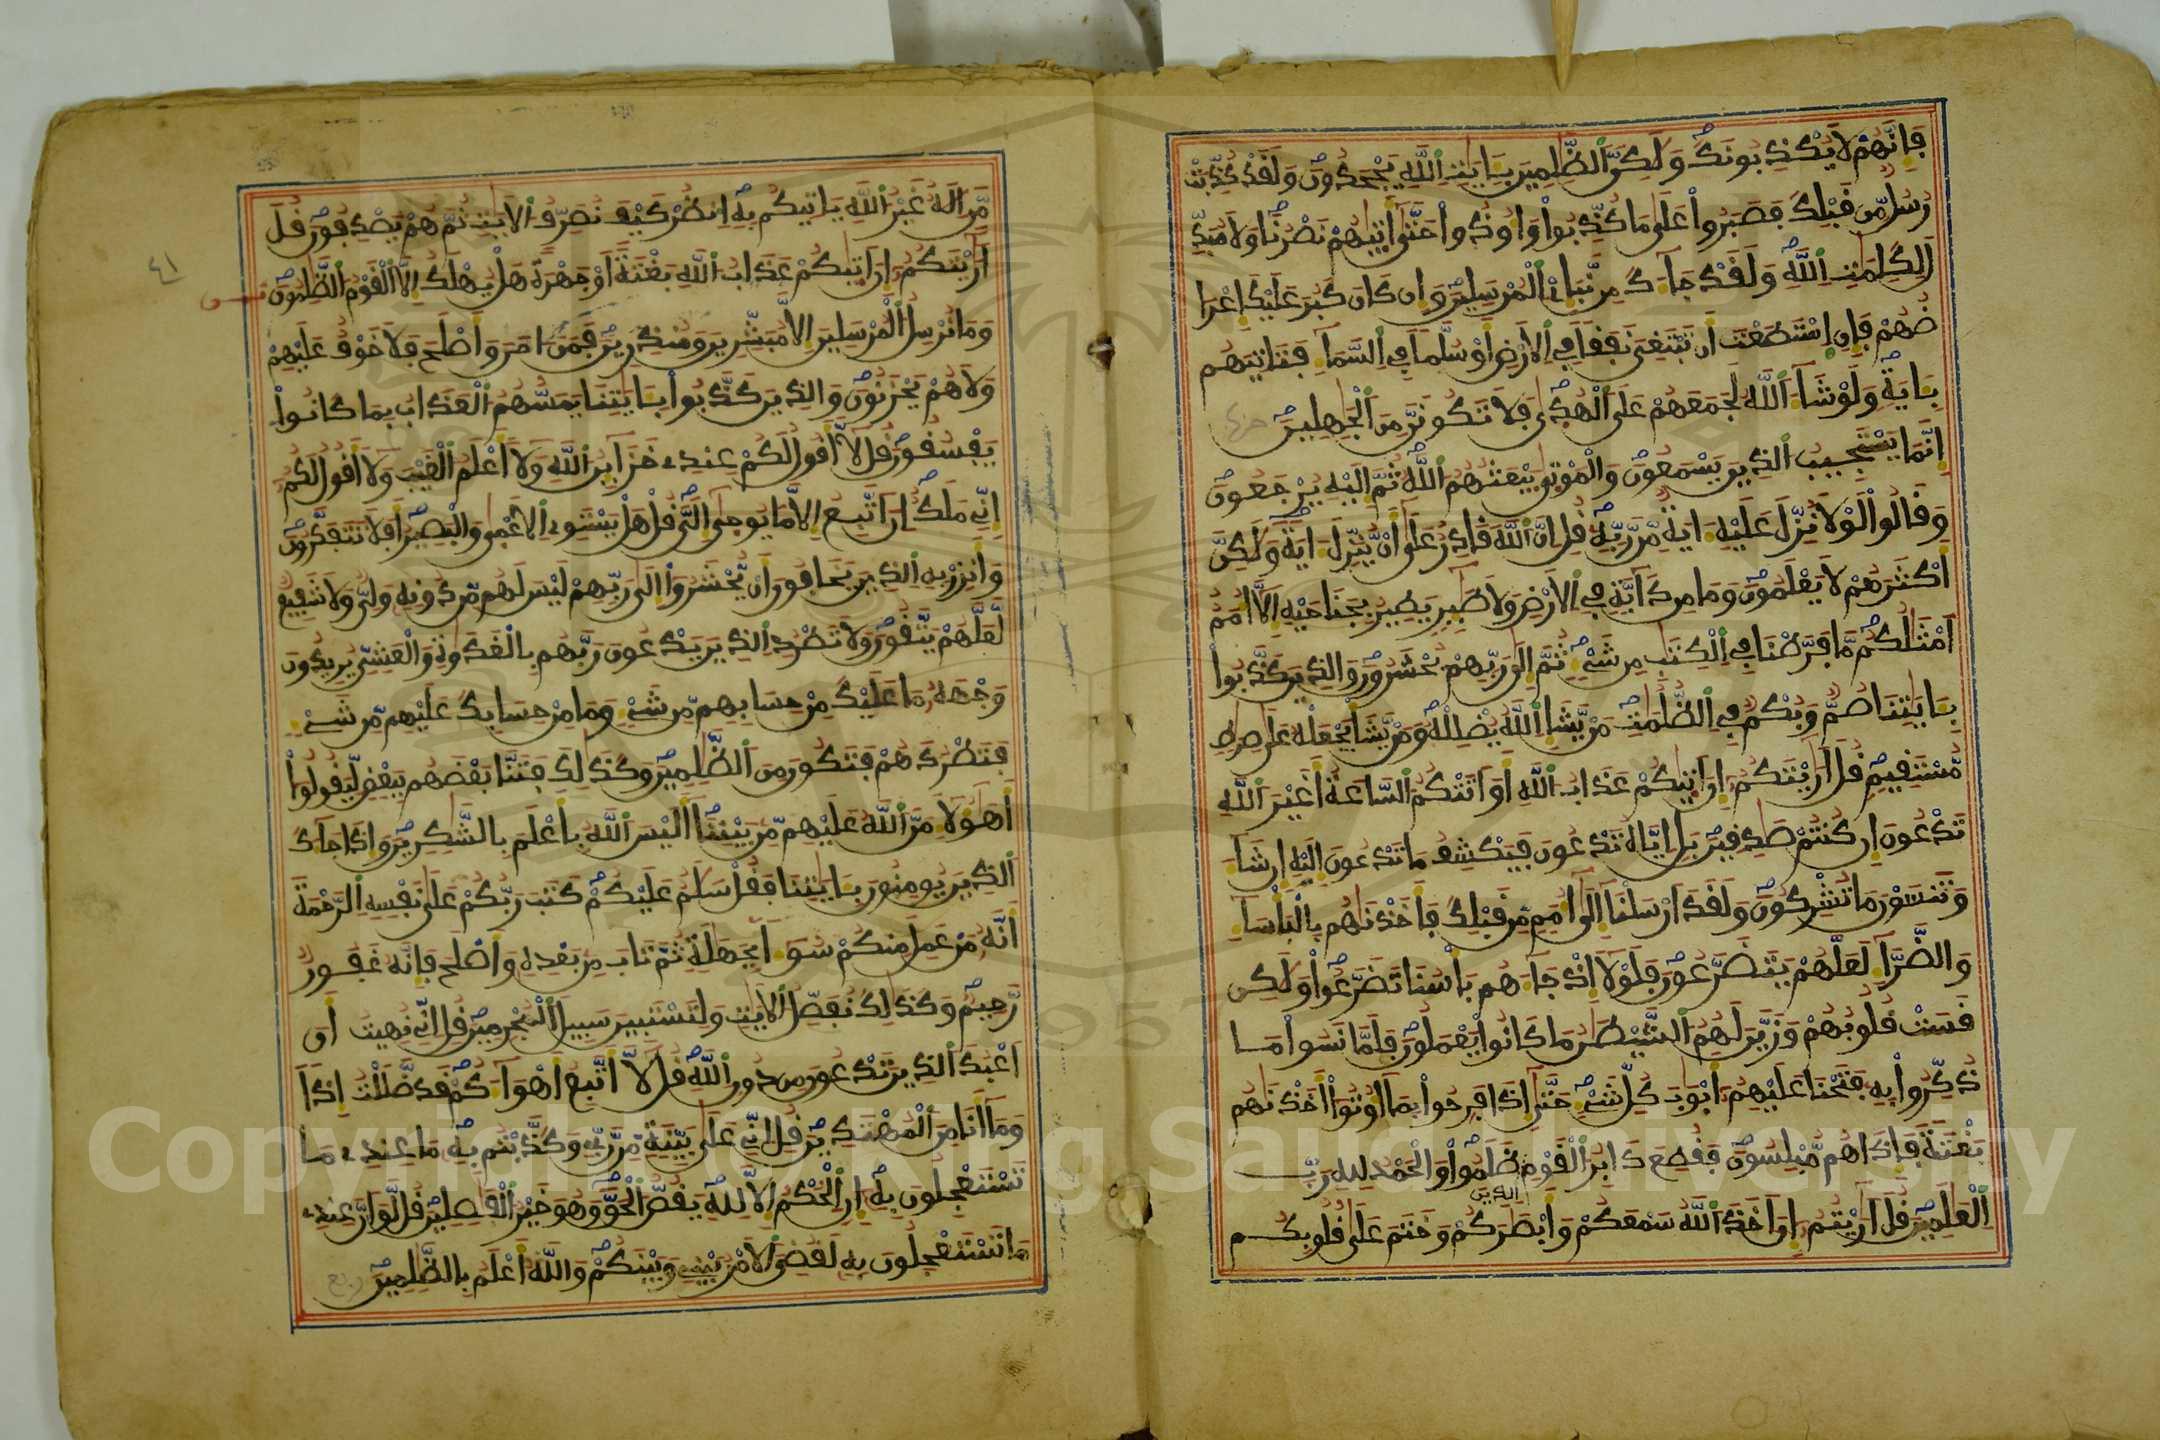 فَإِنَّهُمْ لَا يُكْذِبُونَكَ وَلَكِنَّ الظَّلِمِينَ بِـَايَتِ اللَّهِ يَجْحَدُونَ وَلَقَدْ كُذِّبَتْ
رُسُلٌ مِّن قَبْلِكَ فَصَبَرُوا عَلَى مَا كُذِّبُوا وَأُوذُوا حَتَّى أَتَيهُمْ نَصْرُنَا وَلَا مُبَدِّ
لَ لِكَلِمَتِ اللَّهِ وَلَقَدْ جَآءَكَ مِن نَّبَإِيْ الْمُرْسَلِينَ وَإِن كَانَ كَبُرَ عَلَيْكَ إِعْرَا
ضُهُمْ فَإِنِ اسْتَطَعْتَ أَن تَبْتَغِيَ نَفَقًا فِي الْأَرْضِ أَوْ سُلَّمًا فِي السَّمَآءِ فَتَاتِيَهُم
بِـَايَةٍ وَلَوْ شَآءَ اللَّهُ لَجَمَعَهُمْ عَلَى الْهُدَى فَلَا تَكُونَنَّ مِنَ الْجَهِلِينَ
إِنَّمَا يَسْتَجِيبُ الَّذِينَ يَسْمَعُونَ وَالْمَوْتَى يَبْعَثُهُمُ اللَّهُ ثُمَّ إِلَيْهِ يُرْجَعُونَ
وَقَالُوا لَوْلَا نُزِّلَ عَلَيْهِ ءَايَةٌ مِّن رَّبِّهِ قُلْ إِنَّ اللَّهَ قَادِرٌ عَلَى أَنْ يُّنَزِّلَ ءَايَةً وَلَكِنَّ
أَكْثَرَهُمْ لَا يَعْلَمُونَ وَمَا مِن دَآبَّةٍ فِي الْأَرْضِ وَلَا طَـٰٓئِرٍ يَطِيرُ بِجَنَاحَيْهِ إِلَّا أُمَمٌ
أَمْثَالُكُم مَّا فَرَّطْنَا فِي الْكِتَبِ مِن شَيْءٍ ثُمَّ إِلَى رَبِّهِمْ يُحْشَرُونَ وَالَّذِينَ كَذَّبُوا
بِـَايَتِنَا صُمٌّ وَبُكْمٌ فِي الظُّلُمَتِ مَنْ يَّشَإِ اللَّهُ يُضْلِلْهُ وَمَنْ يَّشَأْ يَجْعَلْهُ عَلَى صِرَطٍ
مُّسْتَقِيمٍ قُلَ اَرَيْتَكُمُ إِنَ اَتَيكُمْ عَذَابُ اللَّهِ أَوَ اَتَتْكُمُ السَّاعَةُ أَغَيْرَ اللَّهِ
تَدْعُونَ إِن كُنتُمْ صَدِقِينَ بَلْ إِيَّاهُ تَدْعُونَ فَيَكْشِفُ مَا تَدْعُونَ إِلَيْهِ إِن شَآءَ
وَتَنسَوْنَ مَا تُشْرِكُونَ وَلَقَدَ اَرْسَلْنَا إِلَى أُمَمٍ مِّن قَبْلِكَ فَأَخَذْنَهُم بِالْبَأْسَآءِ
وَالضَّرَّآءِ لَعَلَّهُمْ يَتَضَرَّعُونَ فَلَوْلَا إِذْ جَآءَهُم بَأْسُنَا تَضَرَّعُوا وَلَكِن
قَسَتْ قُلُوبُهُمْ وَزَيَّنَ لَهُمُ الشَّيْطَنُ مَا كَانُوا يَعْمَلُونَ فَلَمَّا نَسُوا مَا
ذُكِّرُوا بِهِ فَتَحْنَا عَلَيْهِمُ أَبْوَبَ كُلِّ شَيْءٍ حَتَّى إِذَا فَرِحُوا بِمَا أُوتُوا أَخَذْنَهُم
بَغْتَةً فَإِذَا هُم مُّبْلِسُونَ فَقُطِعَ دَابِرُ الْقَوْمِ الَّذِينَ ظَلَمُوا وَالْحَمْدُ لِلهِ رَبِّ
الْعَلَمِينَ قُلَ اَرَيْتُمُ إِنَ اَخَذَ اللَّهُ سَمْعَكُمْ وَأَبْصَرَكُمْ وَخَتَمَ عَلَى قُلُوبِكُم
مَّنِ الَهٌ غَيْرُ اللَّهِ يَاتِيكُم بِهِ انظُرْ كَيْفَ نُصَرِّفُ الْأَيَتِ ثُمَّ هُمْ يَصْدِفُونَ قُلَ
اَرَيْتَكُمُ إِنَ اَتَيكُمْ عَذَابُ اللَّهِ بَغْتَةً أَوْ جَهْرَةً هَلْ يُهْلَكُ إِلَّا الْقَوْمُ الظَّلِمُونَ
وَمَا نُرْسِلُ الْمُرْسَلِينَ إِلَّا مُبَشِّرِينَ وَمُنذِرِينَ فَمَنَ ـامَنَ وَأَصْلَحَ فَلَا خَوْفٌ عَلَيْهِمْ
وَلَا هُمْ يَحْزَنُونَ وَالَّذِينَ كَذَّبُوا بِـَايَتِنَا يَمَسُّهُمُ الْعَذَابُ بِمَا كَانُوا
يَفْسُقُونَ قُل لَّا أَقُولُ لَكُمْ عِندِي خَزَآئِنُ اللَّهِ وَلَا أَعْلَمُ الْغَيْبَ وَلَا أَقُولُ لَكُمُ
إِنِّي مَلَكٌ إِنَ اَتَّبِعُ إِلَّا مَا يُوحَى إِلَيَّ قُلْ هَلْ يَسْتَوِي الْأَعْمَى وَالْبَصِيرُ أَفَلَا تَتَفَكَّرُونَ
وَأَنذِرْ بِهِ الَّذِينَ يَخَافُونَ أَنْ يُّحْشَرُوا إِلَى رَبِّهِمْ لَيْسَ لَهُم مِّن دُونِهِ وَلِيٌّ وَلَا شَفِيعٌ
لَّعَلَّهُمْ يَتَّقُونَ وَلَا تَطْرُدِ الَّذِينَ يَدْعُونَ رَبَّهُم بِالْغَدَوةِ وَالْعَشِيِّ يُرِيدُونَ
وَجْهَهُ مَا عَلَيْكَ مِنْ حِسَابِهِم مِّن شَيْءٍ وَمَا مِنْ حِسَابِكَ عَلَيْهِم مِّن شَيْءٍ
فَتَطْرُدَهُمْ فَتَكُونَ مِنَ الظَّلِمِينَ وَكَذَلِكَ فَتَنَّا بَعْضَهُم بِبَعْضٍ لِّيَقُولُوا
أَهَؤُلَآءِ مَنَّ اللَّهُ عَلَيْهِم مِّن بَيْنِنَا أَلَيْسَ اللَّهُ بِأَعْلَمَ بِالشَّكِرِينَ وَإِذَا جَآءَكَ
الَّذِينَ يُومِنُونَ بِـَايَتِنَا فَقُلْ سَلَمٌ عَلَيْكُمْ كَتَبَ رَبُّكُمْ عَلَى نَفْسِهِ الرَّحْمَةَ
أَنَّهُ مَنْ عَمِلَ مِنكُمْ سُوٓءًا بِجَهَلَةٍ ثُمَّ تَابَ مِن بَعْدِهِ وَأَصْلَحَ فَإِنَّهُ غَفُورٌ
رَّحِيمٌ وَكَذَلِكَ نُفَصِّلُ الْأَيَتِ وَلِتَسْتَبِينَ سَبِيلَ الْمُجْرِمِينَ قُلْ إِنِّي نُهِيتُ أَنَ
اَعْبُدَ الَّذِينَ تَدْعُونَ مِن دُونِ اللَّهِ قُل لَّا أَتَّبِعُ أَهْوَآءَكُمْ قَد ضَّلَلْتُ إِذًا
وَمَا أَنَا مِنَ الْمُهْتَدِينَ قُلْ إِنِّي عَلَى بَيِّنَةٍ مِّن رَّبِّي وَكَذَّبْتُم بِهِ مَا عِندِي مَا
تَسْتَعْجِلُونَ بِهِ إِنِ الْحُكْمُ إِلَّا لِلهِ يَقُصُّ الْحَقَّ وَهُوَ خَيْرُ الْفَصِلِينَ قُل لَّوَ اَنَّ عِندِي
مَا تَسْتَعْجِلُونَ بِهِ لَقُضِيَ الْأَمْرُ بَيْنِي وَبَيْنَكُمْ وَاللَّهُ أَعْلَمُ بِالظَّلِمِينَ
٤١
ربع
Copyright © King Saud University